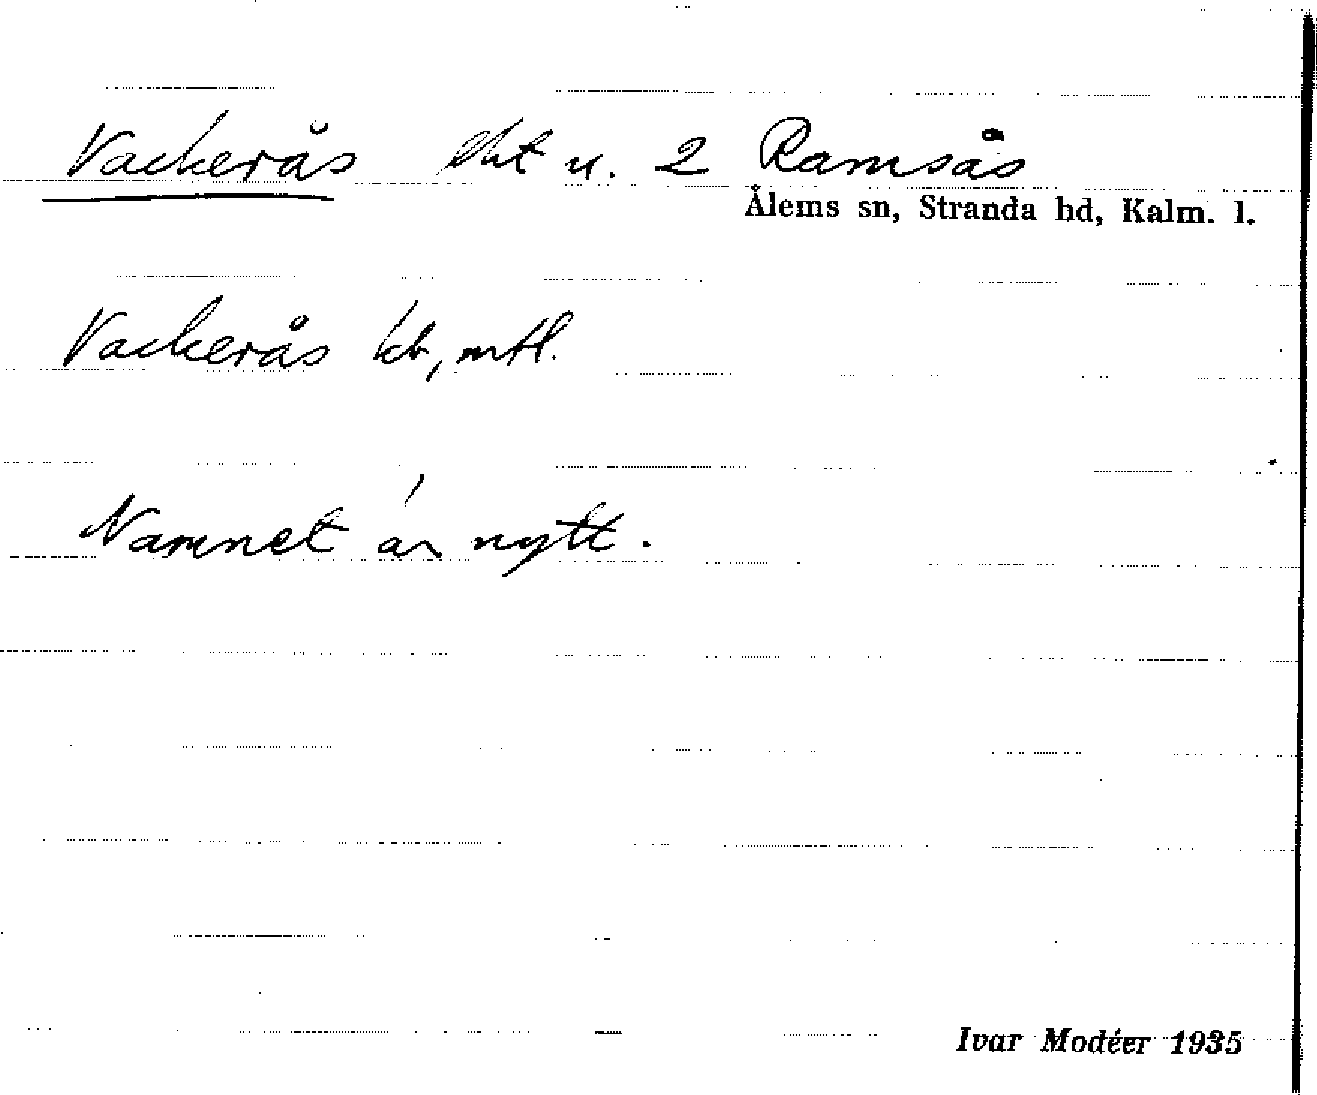 Vackerås lht u. 2 Ramsås
Ålems sn, Stranda hd, Kalm. l.
Vackerås kb, mtl.
Namnet är nytt.
Ivar Modéer 1935